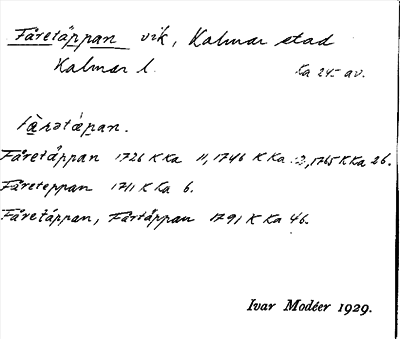 Fåretäppan vik, Kalmar stad
Kalmar l. Ka 24- av.
fårətäpan.
Fåretäppan 1726 K Ka 11, 1746 K Ka :3, 1765 K Ka 26.
Fåreteppan 1711 K Ka 6.
Fåretäppan, Fårtäppan 1791 K Ka 46.
Ivar Modéer 1929.